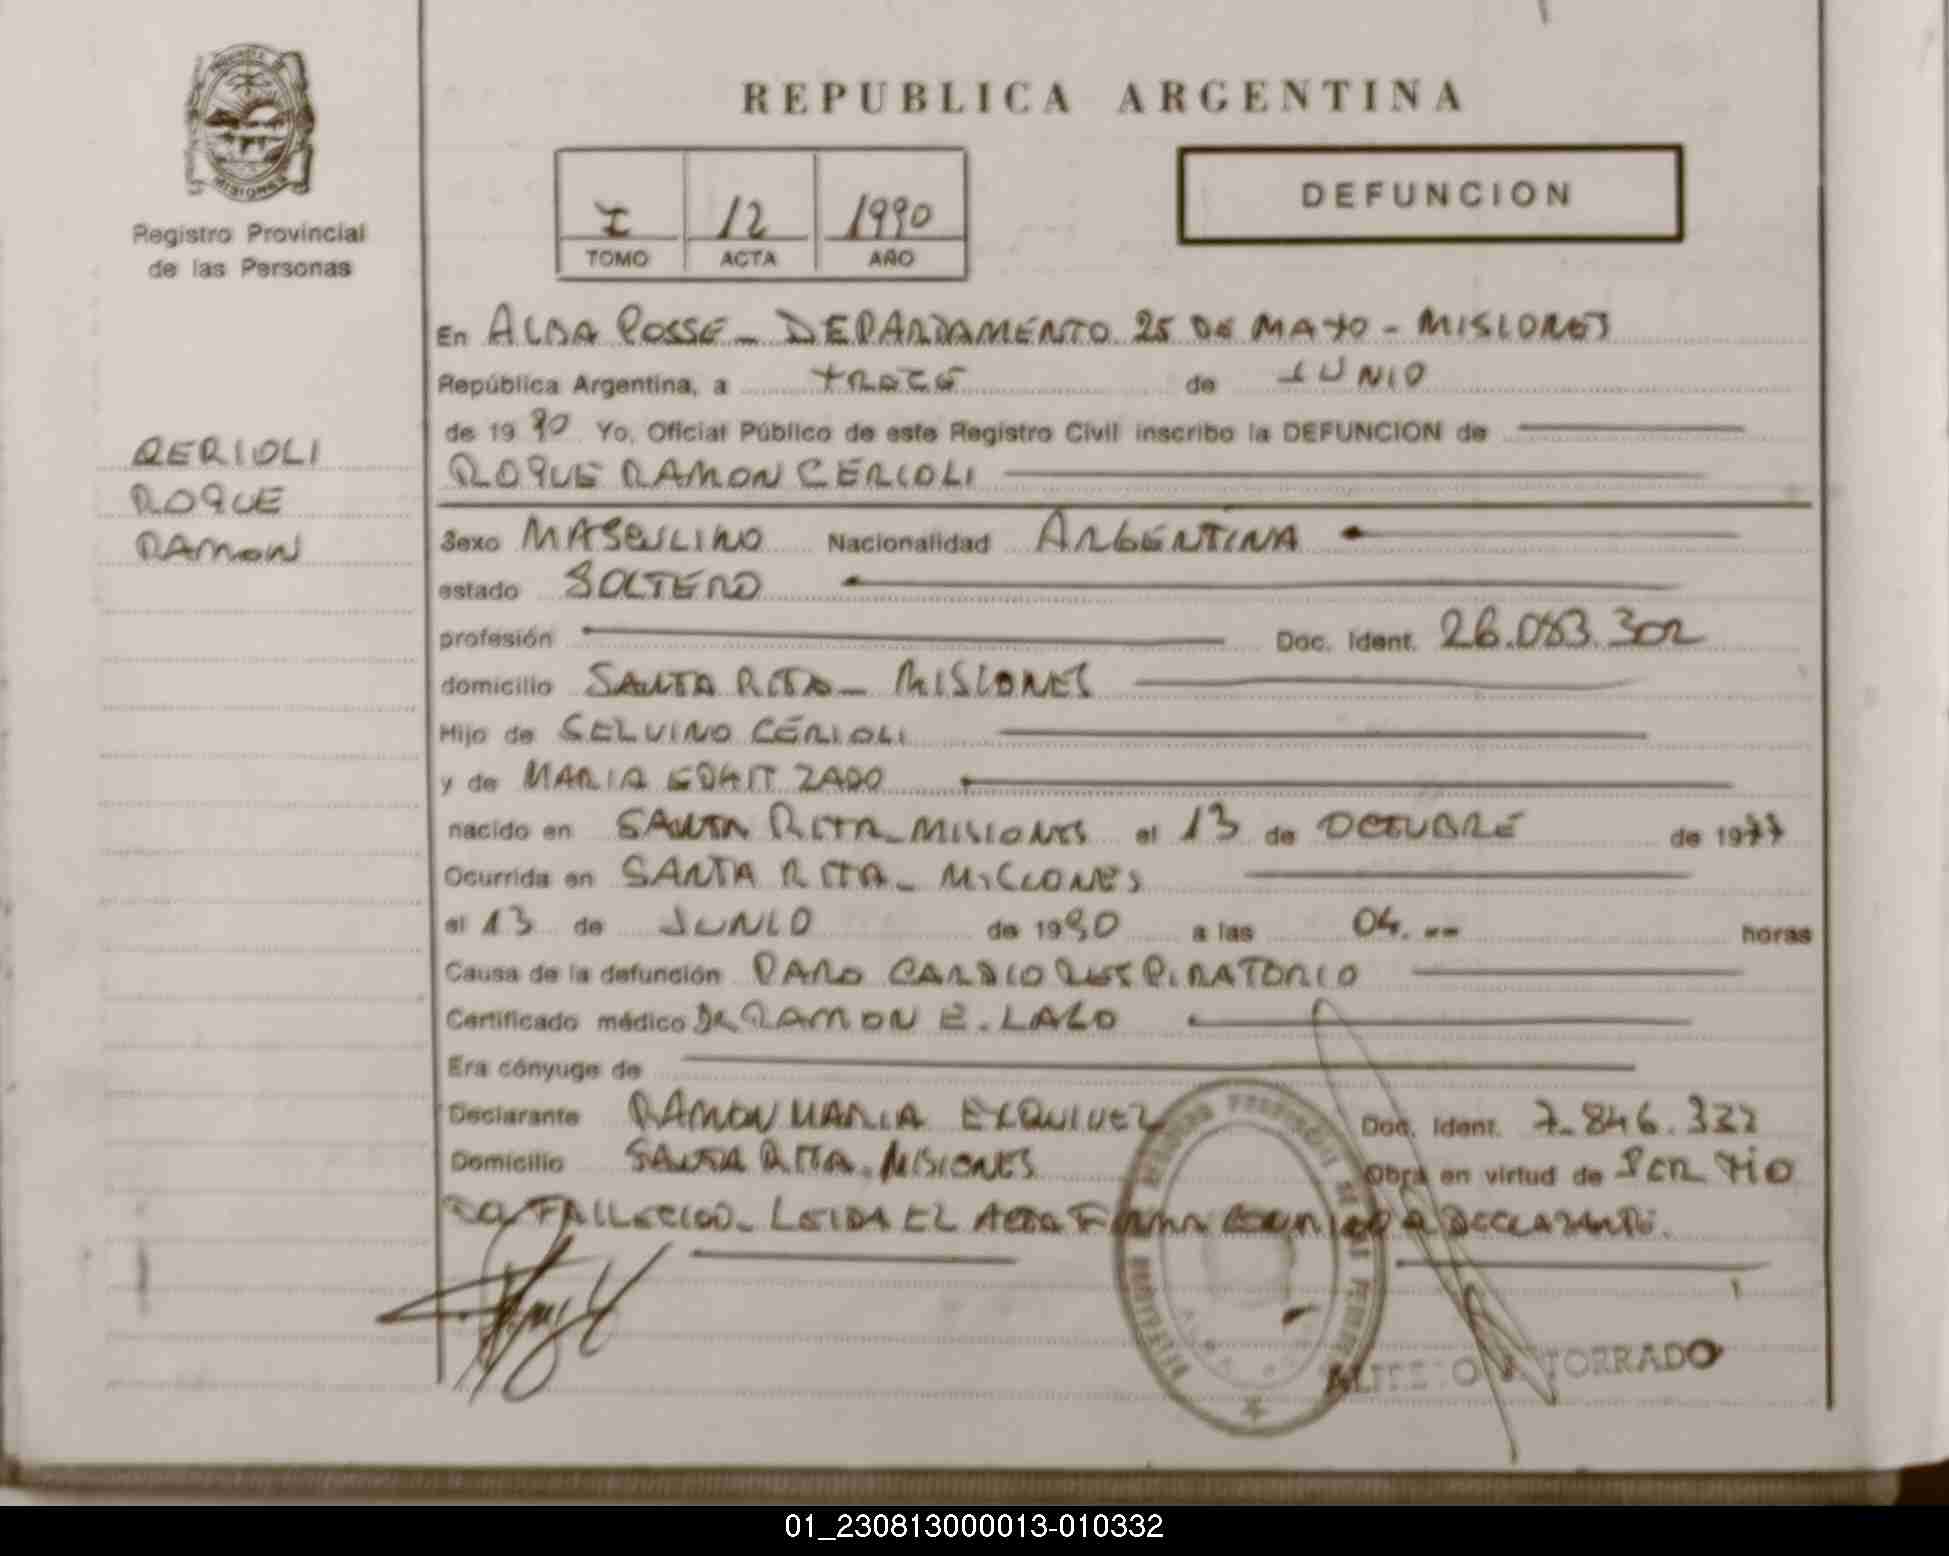 REPUBLICA ARGENTINA
MISIONES
Registro Provincial
de las Personas
I 12 1990
TOMO ACTA AÑO
DEFUNCION
En ALBA POSSE - DEPARTAMENTO 25 DE MAYO - MISIONES
República Argentina, a TRECE de JUNIO
de 1990 Yo, Oficial Público de este Registro Civil inscribo la DEFUNCION de
ROQUE RAMON CERIOLI
CERIOLI
ROQUE
RAMON
Sexo MASCULINO Nacionalidad ARGENTINA
estado SOLTERO
profesión Doc. Ident. 26.083.302
domicilio SANTA RITA - MISIONES
Hijo de SELVINO CERIOLI
y de MARIA EDHIT
nacido en SANTA RITA - MISIONES el 13 de OCTUBRE de 1977
Ocurrida en SANTA RITA - MISIONES
el 13 de JUNIO de 1990 a las 04.-- horas
Causa de la defunción PARO CARDIO RESPIRATORIO
Certificado médico DR RAMON E. LAGO
Era cónyuge de
Declarante RAMON MARIA EXQUIVEL Doc. Ident. 7.846.322
Domicilio SANTA RITA - MISIONES Obra en virtud de SER TIO
FALLECIDO - LEIDA EL ACTA FIRMA CONMIGO DECLARANTE.
TORRADO
01_230813000013-010332